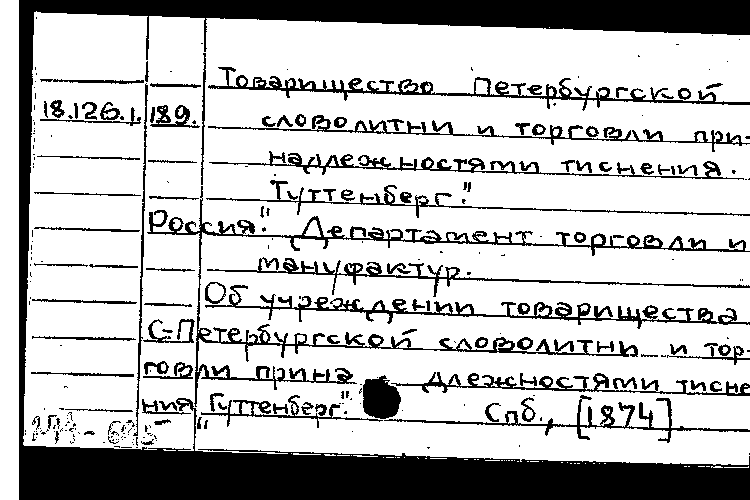 Товарищество Петербургской
18.126.1.189. словолитни и торговли при-
надлежностями тиснения.
Гуттенберг."
Россия." Департамент торговли и
мануфактур.
Об учреждении товарищества
С-Петербургской словолитни и тор-
говли прина длежностями тисне
ния "Гуттенберг." Спб., [1874]